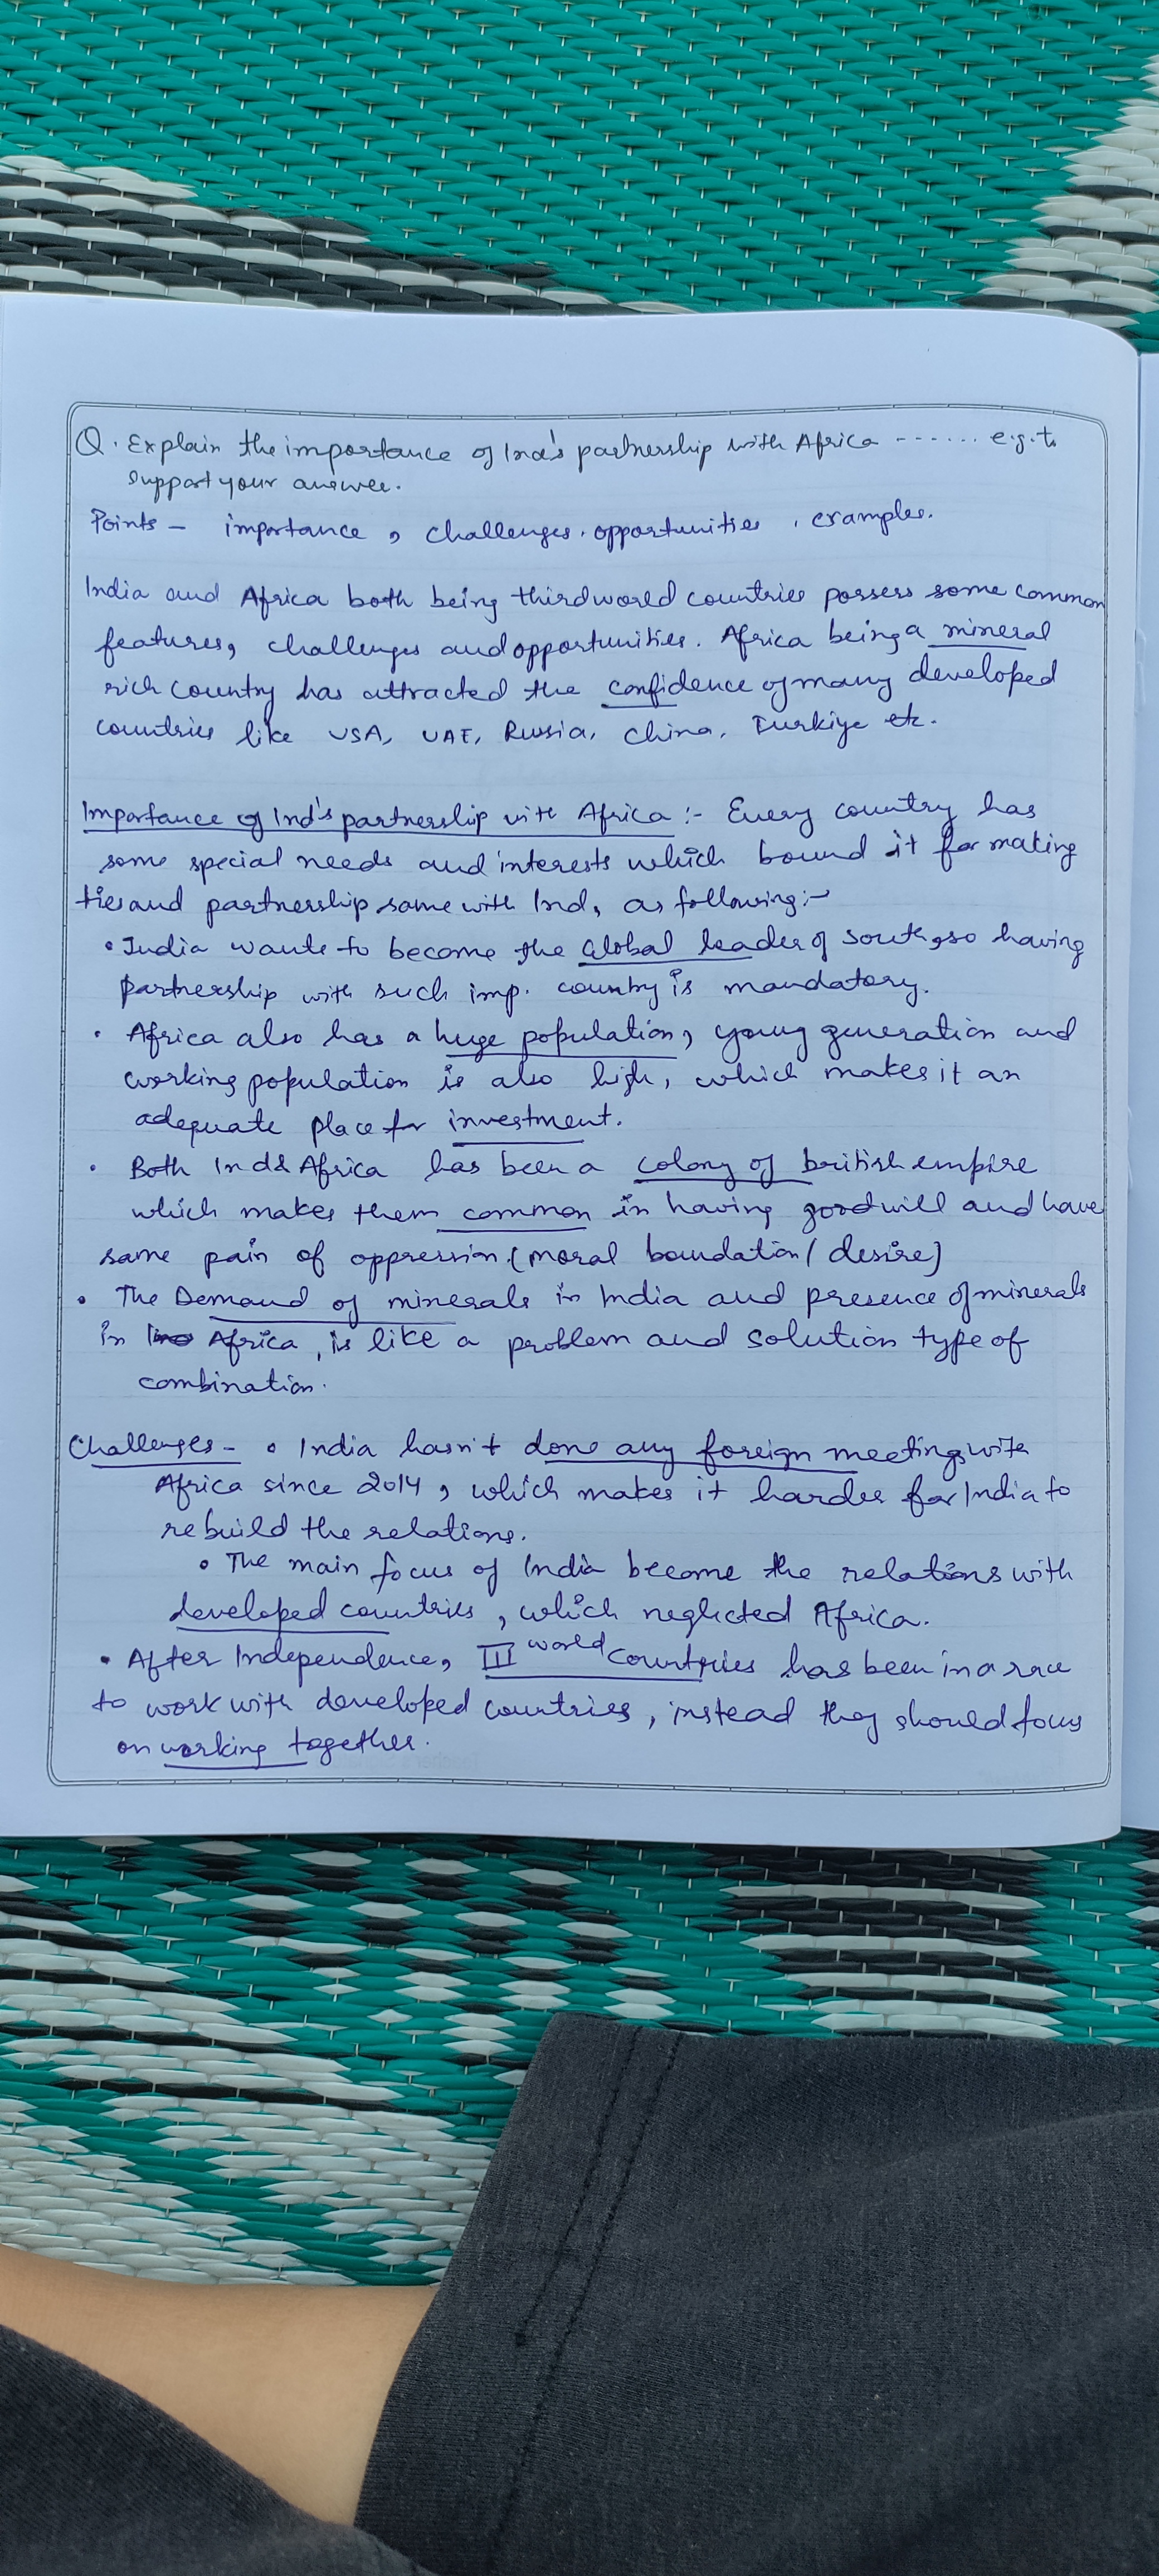 Q. Explain the importance of Ind's partnership with Africa ....... e.g. to
support your answer.
Points - importance, challenges, opportunities, examples.
India and Africa both being third world countries possess some common
features, challenges and opportunities. Africa being a mineral
rich country has attracted the confidence of many developed
countries like USA, UAE, Russia, China, Turkiye etc.
Importance of Ind's partnership with Africa :- Every country has
some special needs and interests which bound it for making
ties and partnership same with Ind, as following :-
• India wants to become the Global leader of south, so having
partnership with such imp. country is mandatory.
• Africa also has a huge population, young generation and
working population is also high, which makes it an
adequate place for investment.
• Both Ind & Africa has been a colony of british empire
which makes them common in having goodwill and have
same pain of oppression. (moral boundation / desire)
• The Demand of minerals in India and presence of minerals
in Africa, is like a problem and solution type of
combination.
Challenges - • India hasn't done any foreign meetings with
Africa since 2014, which makes it harder for India to
rebuild the relations.
• The main focus of India become the relations with
developed countries, which neglected Africa.
• After Independence, III world countries has been in a race
to work with developed countries, instead they should focus
on working together.